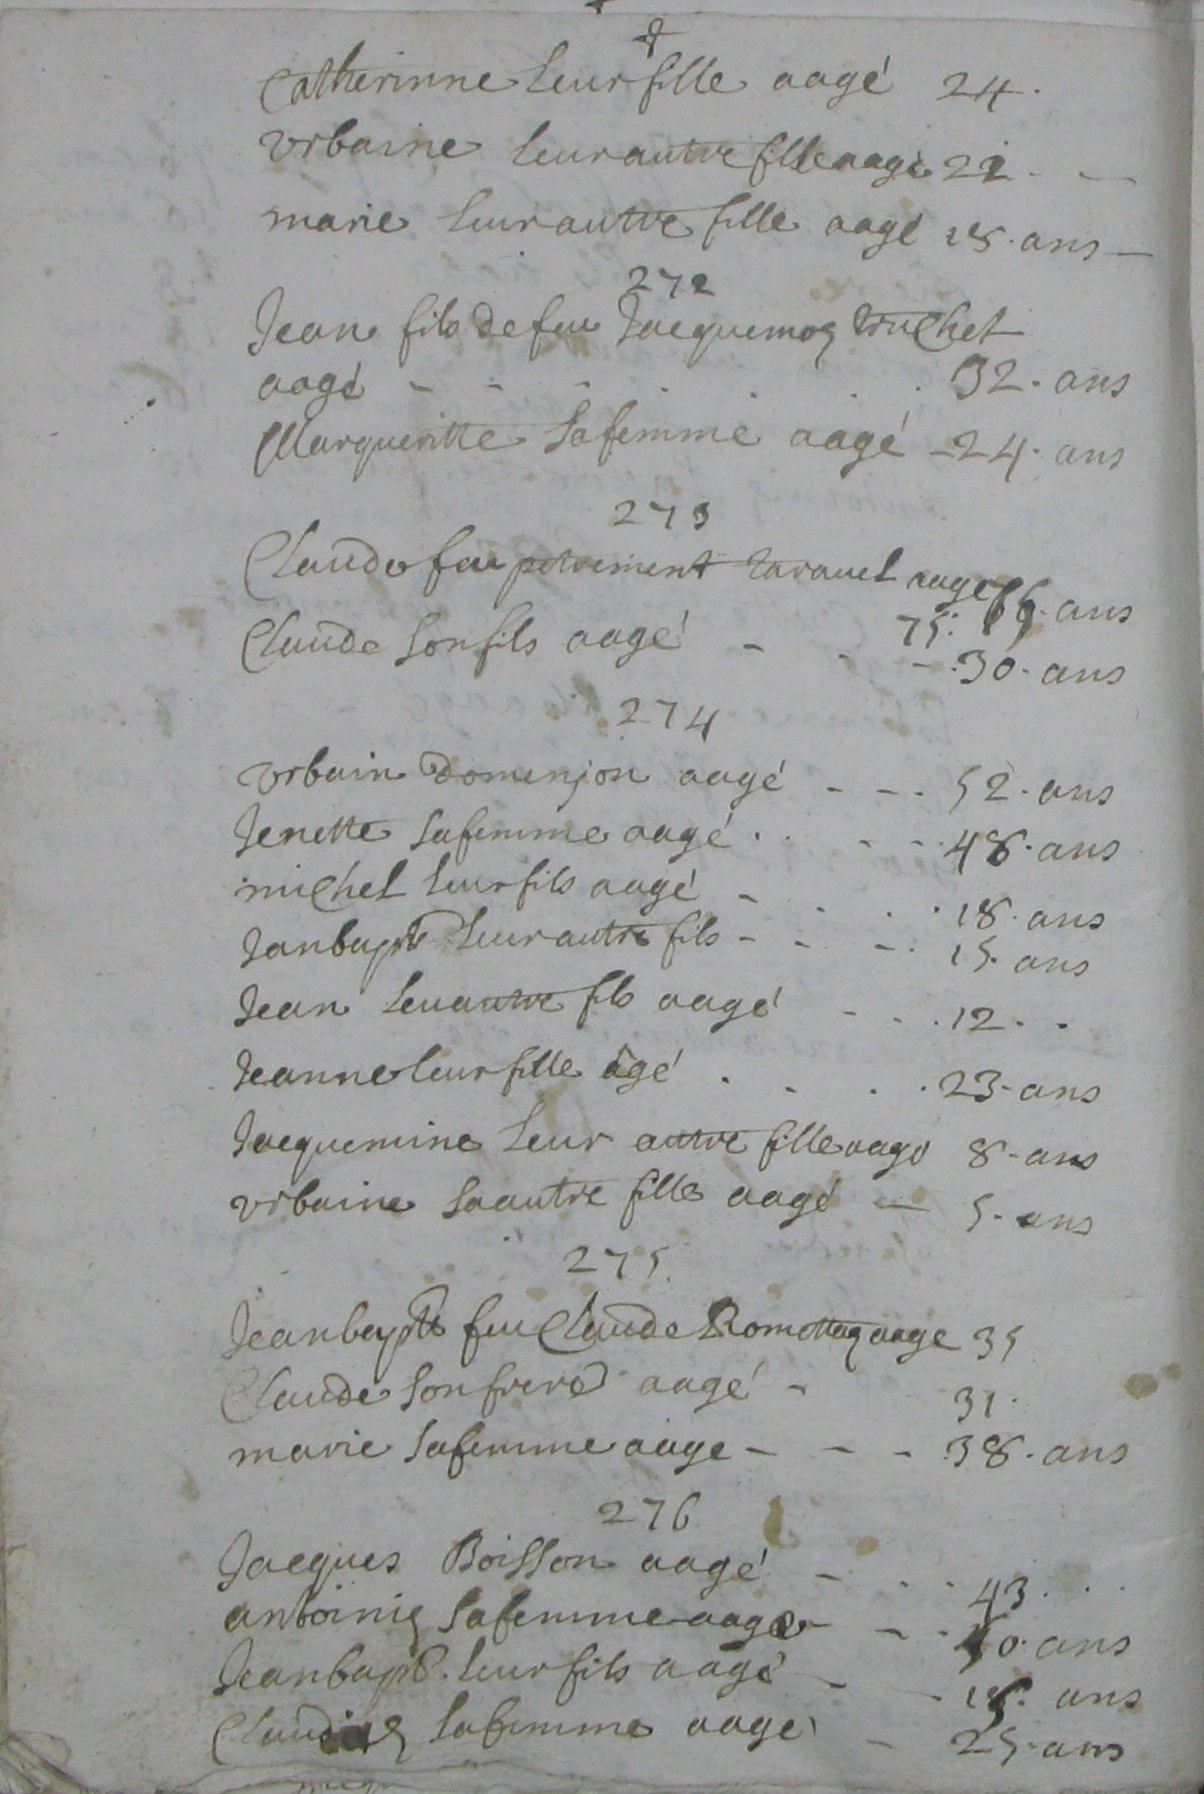 Catherinne leur fille aagé 24.
Vrbaine leur autre fille aagé 22 - -
marie leur autre fille aagé 18. ans -
272
Jean fils de feu Jacquemoz truchet
aagé - - - . . . 32. ans
Marqueritte sa femme aagé - 24. ans
273
Claude feu petrement taravel aagé 66. ans
75.
Claude son fils aagé - - - 30. ans
274
Vrbain Dominjon aagé - - . 52. ans
Jenette sa femme aagé . . - - 48. ans
michel leur fils aagé - . . . 18. ans
Janbapte leur autre fils - - - . 15. ans
Jean leu autre fils aagé - - . 12. .
Jeanne leur fille agé . - . . 23. ans
Jacquemine leur autre fille aagé 8. ans
Vrbaine sa autre fille aagé - 5. ans
275
Jeanbaptte feu Claude Romottaz aage 35
Claude son frere aagé - 31.
marie sa femme aage - - - 38. ans
276
Jacques Boisson aagé - . . . 43. . .
antoiniz sa femme aage - - . 40. ans
Jeanbapt. leur fils aagé - - 18. ans
sa femme aage - 25. ans